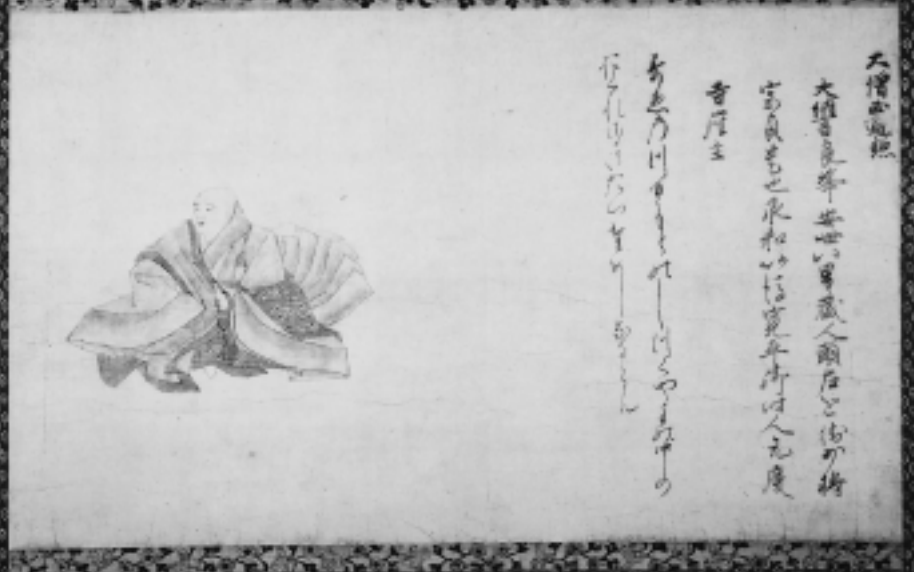 大僧正遍照
大納言良岑安世八男蔵人頭左近衛少将
宗貞也承和以後寛平御時人元慶
寺座主
すゑのつゆもとのしつくやよの中の
おくれさきたつためしなるらん